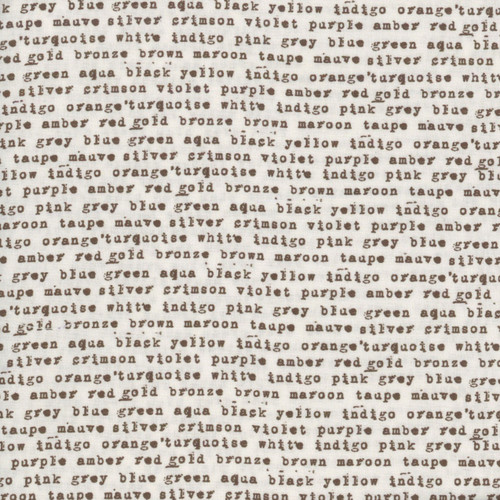 grey blue green aqua black yellow indigo
aupe mauve silver crimson violet purple amber red gold
ge'turquoise white indigo pink grey blue green aqua bla
ed gold bronze brown maroon taupe mauve silver crimson
ue green aqua black yellow indigo orange'turquoise whit
silver crimson violet purple amber red gold bronze bro
indigo orange'turquoise white indigo pink grey blue gr
rple amber red gold bronze brown maroon taupe mauve s
ink grey blue green aqua black yellow indigo orange't
taupe mauve silver crimson violet purple amber red gol
llow indigo orange'turquoise white indigo pink grey blu
t purple amber red gold bronze brown maroon taupe mauv
igo pink grey blue green aqua black yellow indigo oran
maroon taupe mauve silver crimson violet purple amber r
digo orange'turquoise white indigo pink grey blue gree
ple amber red gold bronze brown maroon taupe mauve sil
k grey blue green aqua black yellow indigo orange'turq
aupe mauve silver crimson violet purple amber red gold
turquoise white indigo pink grey blue green aqua black
d gold bronze brown maroon taupe mauve silver crimson
green aqua black yellow indigo orange'turquoise white
silver crimson violet purple amber red gold bronze brow
ndigo orange'turquoise white indigo pink grey blue gre
purple amber red gold bronze brown maroon taupe mauve
nk grey blue green aqua black yellow indigo orange'tur
taupe mauve silver crimson violet purple amber red gold
low indigo orange'turquoise white indigo pink grey blu
purple amber red gold bronze brown maroon taupe mauve
pink grey blue green aqua black yellow indigo orange
oon taupe mauve silver crimson violet purple amber red